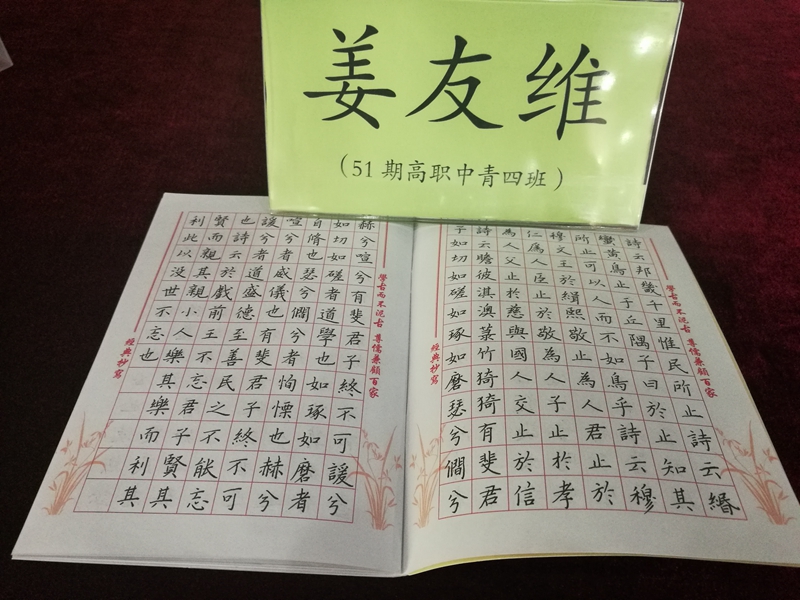 姜友维
（51期高职中青四班）
學古而不泥古 尊儒兼顧百家
詩云邦畿千里惟民所止詩云緡
蠻黃鳥止于丘隅子曰於止知其
所止可以人而不如鳥乎詩云穆
穆文王於緝熙敬止為人君止於
仁為人臣止於敬為人子止於孝
為人父止於慈與國人交止於信
詩云瞻彼淇澳菉竹猗猗有斐君
子如切如磋如琢如磨瑟兮僩兮
經典抄寫
學古而不泥古 尊儒兼顧百家
赫兮喧兮有斐君子終不可諼兮
如切如磋者道學也如琢如磨者
自脩也瑟兮僩兮者恂慄也赫兮
喧兮者威儀也有斐君子終不可
諼兮者道盛德至善民之不能忘
也詩云於戲前王不忘君子賢其
賢而親其親小人樂其樂而利其
利此以沒世不忘也
經典抄寫